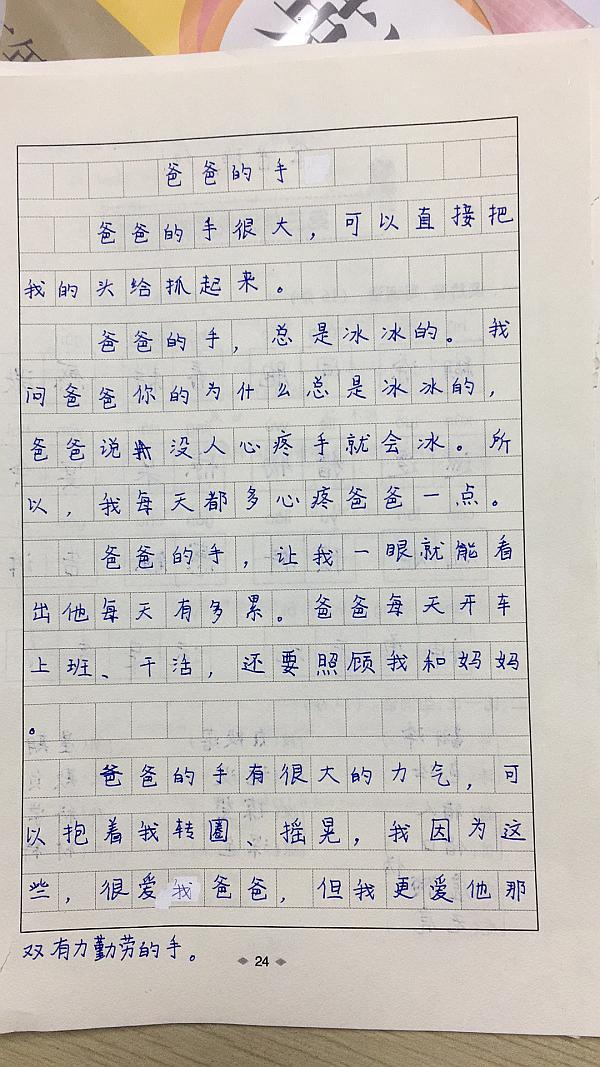 爸爸的手
爸爸的手很大，可以直接把
我的头给抓起来。
爸爸的手，总是冰冰的。我
问爸爸你的为什么总是冰冰的，
爸爸说没人心疼手就会冰。所
以，我每天都多心疼爸爸一点。
爸爸的手，让我一眼就能看
出他每天有多累。爸爸每天开车
上班、干活，还要照顾我和妈妈
。
爸爸的手有很大的力气，可
以抱着我转圈、摇晃，我因为这
些，很爱我爸爸，但我更爱他那
双有力勤劳的手。
24